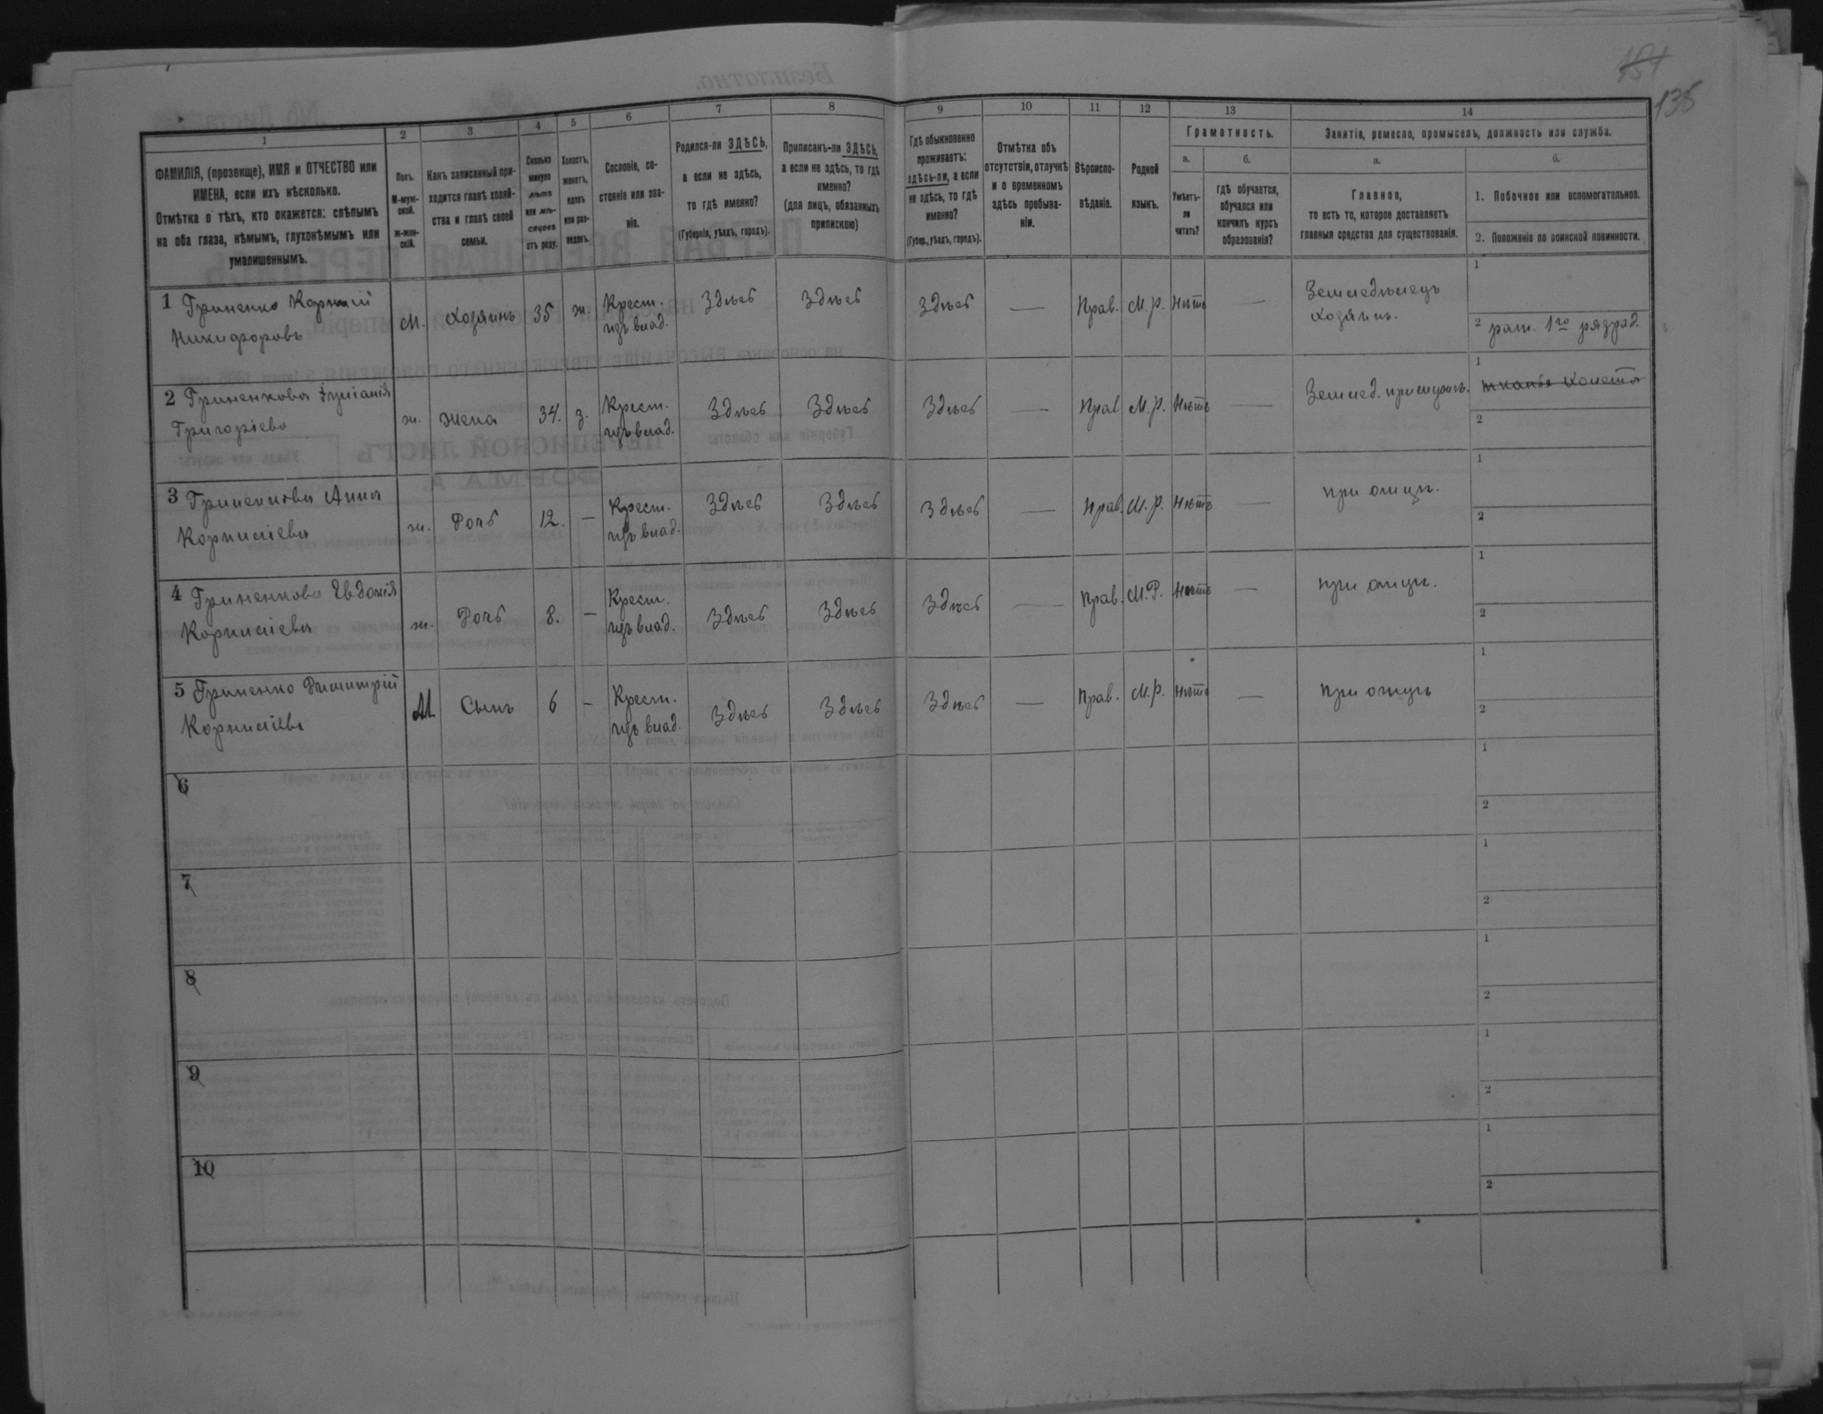 151
135
1
2
3
4
5
6
7
8
9
10
11
12
13
14
ФАМИЛІЯ, (прозвище), ИМЯ и ОТЧЕСТВО или
ИМЕНА, если ихъ нѣсколько.
Отмѣтка о тѣхъ, кто окажется: слѣпымъ
на оба глаза, нѣмымъ, глухонѣмымъ или
умалишеннымъ.
Полъ.
М-муж-
ской.
ж-жен-
скій.
Какъ записанный при-
ходится главѣ хозяй-
ства и главѣ своей
семьи.
Сколько
минуло
лѣтъ
или мѣ-
сяцевъ
отъ роду.
Холостъ,
женатъ,
вдовъ
или раз-
веденъ.
Сословіе, со-
стояніе или зва-
ніе.
Родился-ли ЗДѢСЬ,
а если не здѣсь,
то гдѣ именно?
(Губернія, уѣздъ, городъ).
Приписанъ-ли ЗДѢСЬ,
а если не здѣсь, то гдѣ
именно?
(для лицъ, обязанныхъ
припискою)
Гдѣ обыкновенно
проживаетъ:
здѣсь-ли, а если
не здѣсь, то гдѣ
именно?
(Губер., уѣздъ, городъ).
Отмѣтка объ
отсутствіи, отлучкѣ
и о временномъ
здѣсь пребыва-
ніи.
Вѣроиспо-
вѣданіе.
Родной
языкъ.
Грамотность.
а.
б.
Умѣетъ-
ли
читать?
гдѣ обучается,
обучался или
кончилъ курсъ
образованія?
Занятіе, ремесло, промыселъ, должность или служба.
а.
б.
Главное,
то есть то, которое доставляетъ
главныя средства для существованія.
1. Побочное или вспомогательное.
2. Положеніе по воинской повинности.
1 Гриненко Корнѣй
Никифоровъ
М. Хозяинъ 35 ж. Крест.
изъ влад.
Здѣсь Здѣсь Здѣсь — Прав. М.р. Нѣтъ —
Земледѣлецъ
хозяинъ.
1
2 рат. 1го разряд.
2 Гриненкова
Григоріева
ж. Жена 34. з. Крест.
изъ влад.
Здѣсь Здѣсь Здѣсь — Прав. М.р. Нѣтъ —
Землед.
1 тканье холста
2
3 Гриненкова Анна
Корниліева
ж. Дочь 12. — Крест.
изъ влад.
Здѣсь Здѣсь Здѣсь — Прав. М.р. Нѣтъ —
при отцѣ.
1
2
4 Гриненкова Евдокія
Корниліева
ж. Дочь 8. — Крест.
изъ влад.
Здѣсь Здѣсь Здѣсь — Прав. М.Р. Нѣтъ —
при отцѣ.
1
2
5 Гриненко Димитрій
Корниліевъ
М. Сынъ 6 — Крест.
изъ влад.
Здѣсь Здѣсь Здѣсь — Прав. М.р. Нѣтъ —
При отцѣ
1
2
6
1
2
7
1
2
8
1
2
9
1
2
10
1
2